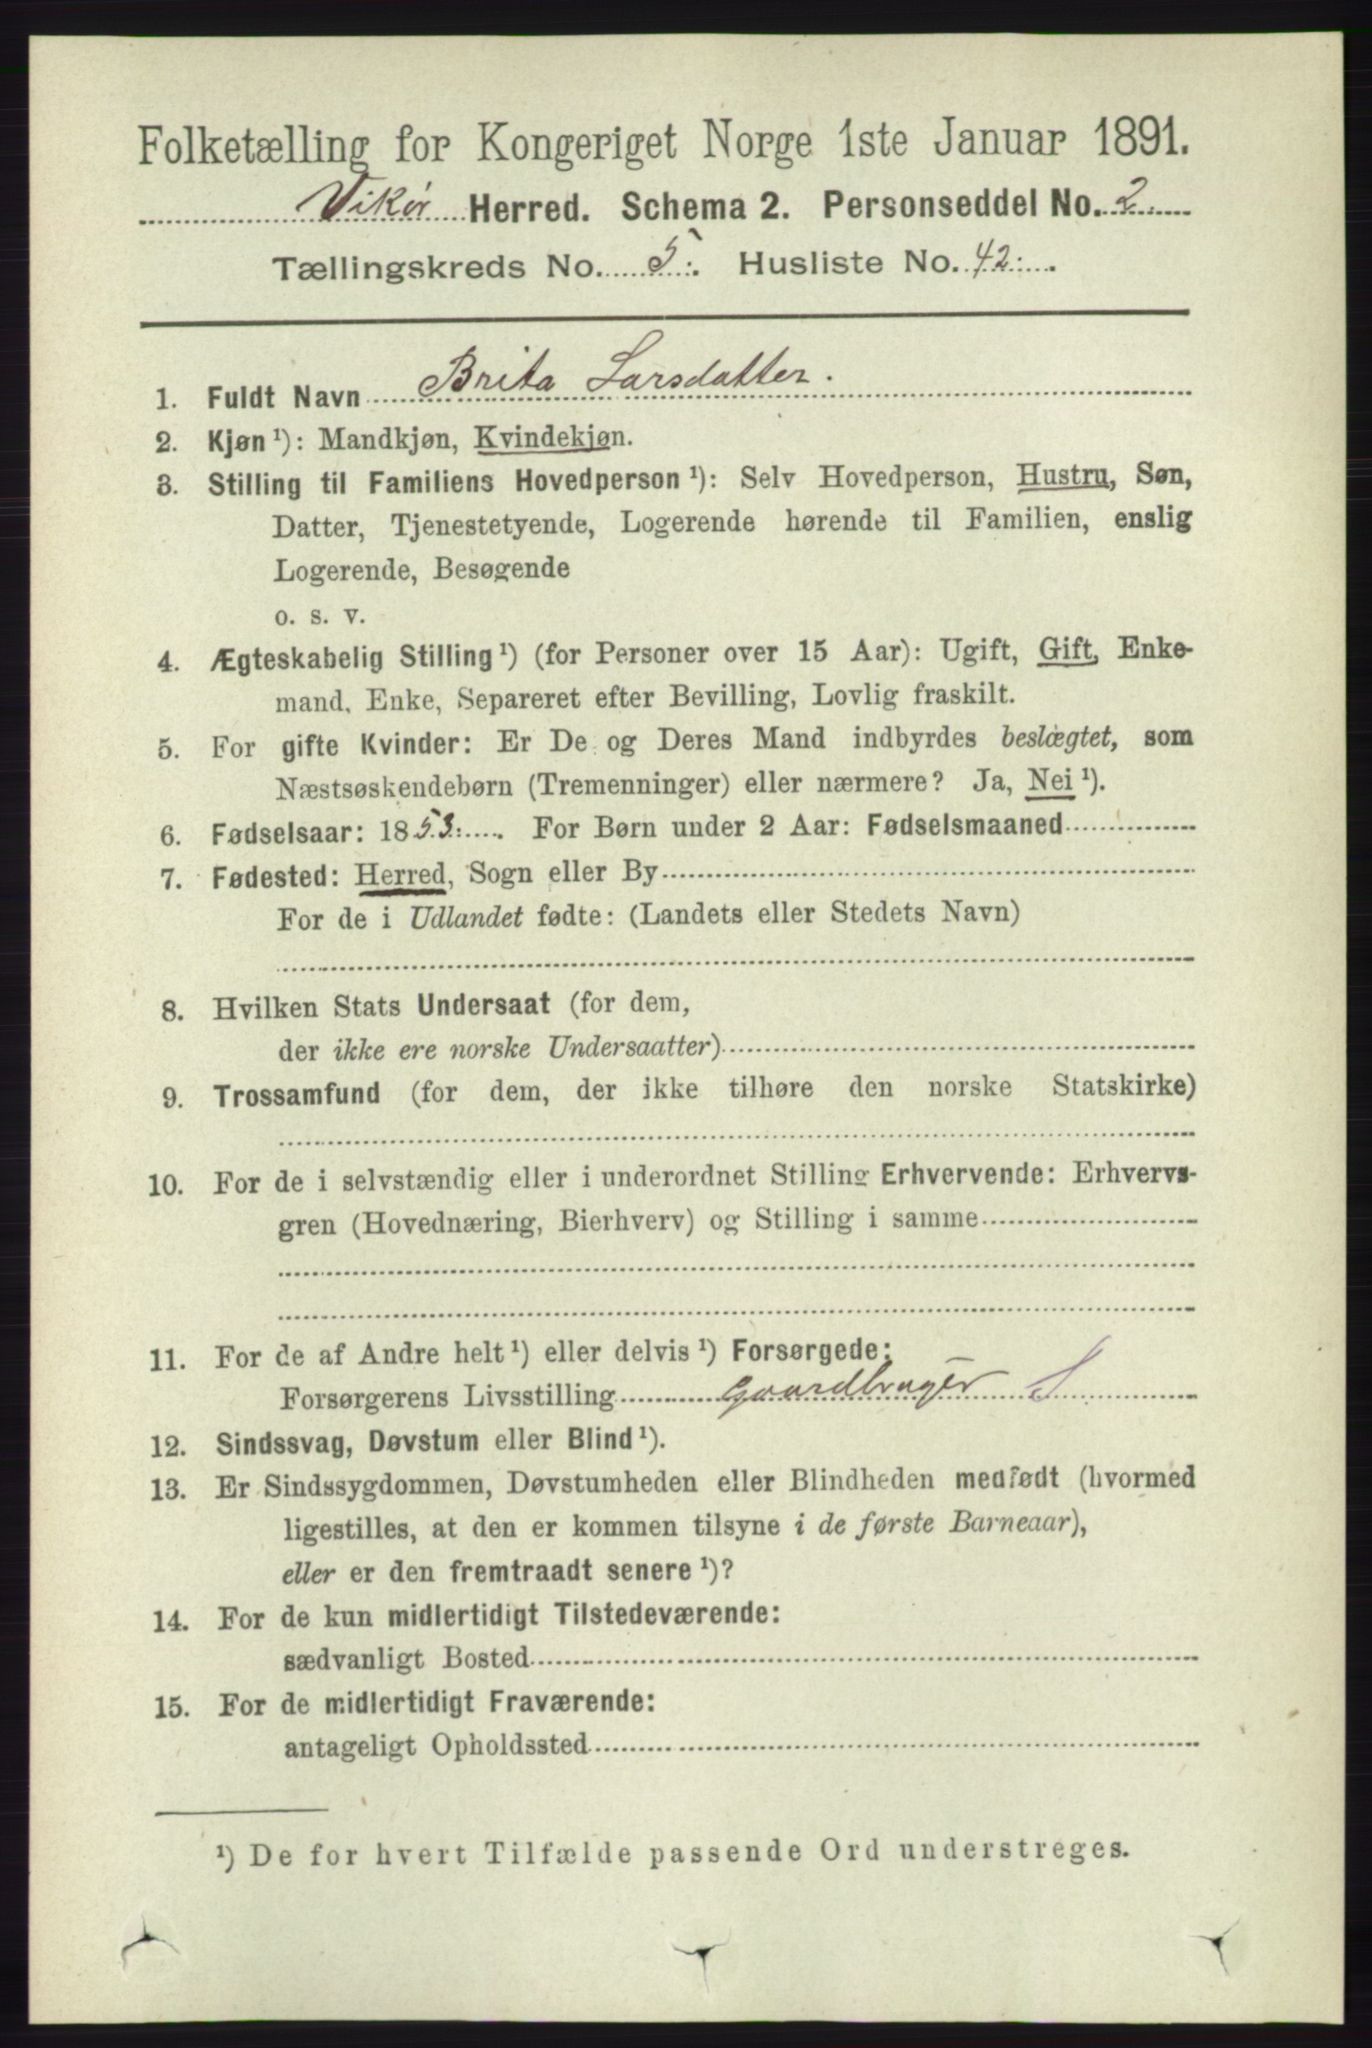 Folketælling for Kongeriget Norge 1ste Januar 1891.
Vikør Herred. Schema 2. Personseddel No. 2.
Tællingskreds No. 5. Husliste No. 42.
1. Fuldt Navn Brita Larsdatter.
2. Kjøn¹): Mandkjøn, Kvindekjøn.
3. Stilling til Familiens Hovedperson¹): Selv Hovedperson, Hustru, Søn,
Datter, Tjenestetyende, Logerende hørende til Familien, enslig
Logerende, Besøgende
o. s. v.
4. Ægteskabelig Stilling¹) (for Personer over 15 Aar): Ugift, Gift, Enke-
mand, Enke, Separeret efter Bevilling, Lovlig fraskilt.
5. For gifte Kvinder: Er De og Deres Mand indbyrdes beslægtet, som
Næstsøskendebørn (Tremenninger) eller nærmere? Ja, Nei¹).
6. Fødselsaar: 1853. For Børn under 2 Aar: Fødselsmaaned
7. Fødested: Herred, Sogn eller By
For de i Udlandet fødte: (Landets eller Stedets Navn)
8. Hvilken Stats Undersaat (for dem,
der ikke ere norske Undersaatter)
9. Trossamfund (for dem, der ikke tilhøre den norske Statskirke)
10. For de i selvstændig eller i underordnet Stilling Erhvervende: Erhvervs-
gren (Hovednæring, Bierhverv) og Stilling i samme
11. For de af Andre helt¹) eller delvis¹) Forsørgede:
Forsørgerens Livsstilling gaardbruger S
12. Sindssvag, Døvstum eller Blind¹).
13. Er Sindssygdommen, Døvstumheden eller Blindheden medfødt (hvormed
ligestilles, at den er kommen tilsyne i de første Barneaar),
eller er den fremtraadt senere¹)?
14. For de kun midlertidigt Tilstedeværende:
sædvanligt Bosted
15. For de midlertidigt Fraværende:
antageligt Opholdssted
¹) De for hvert Tilfælde passende Ord understreges.